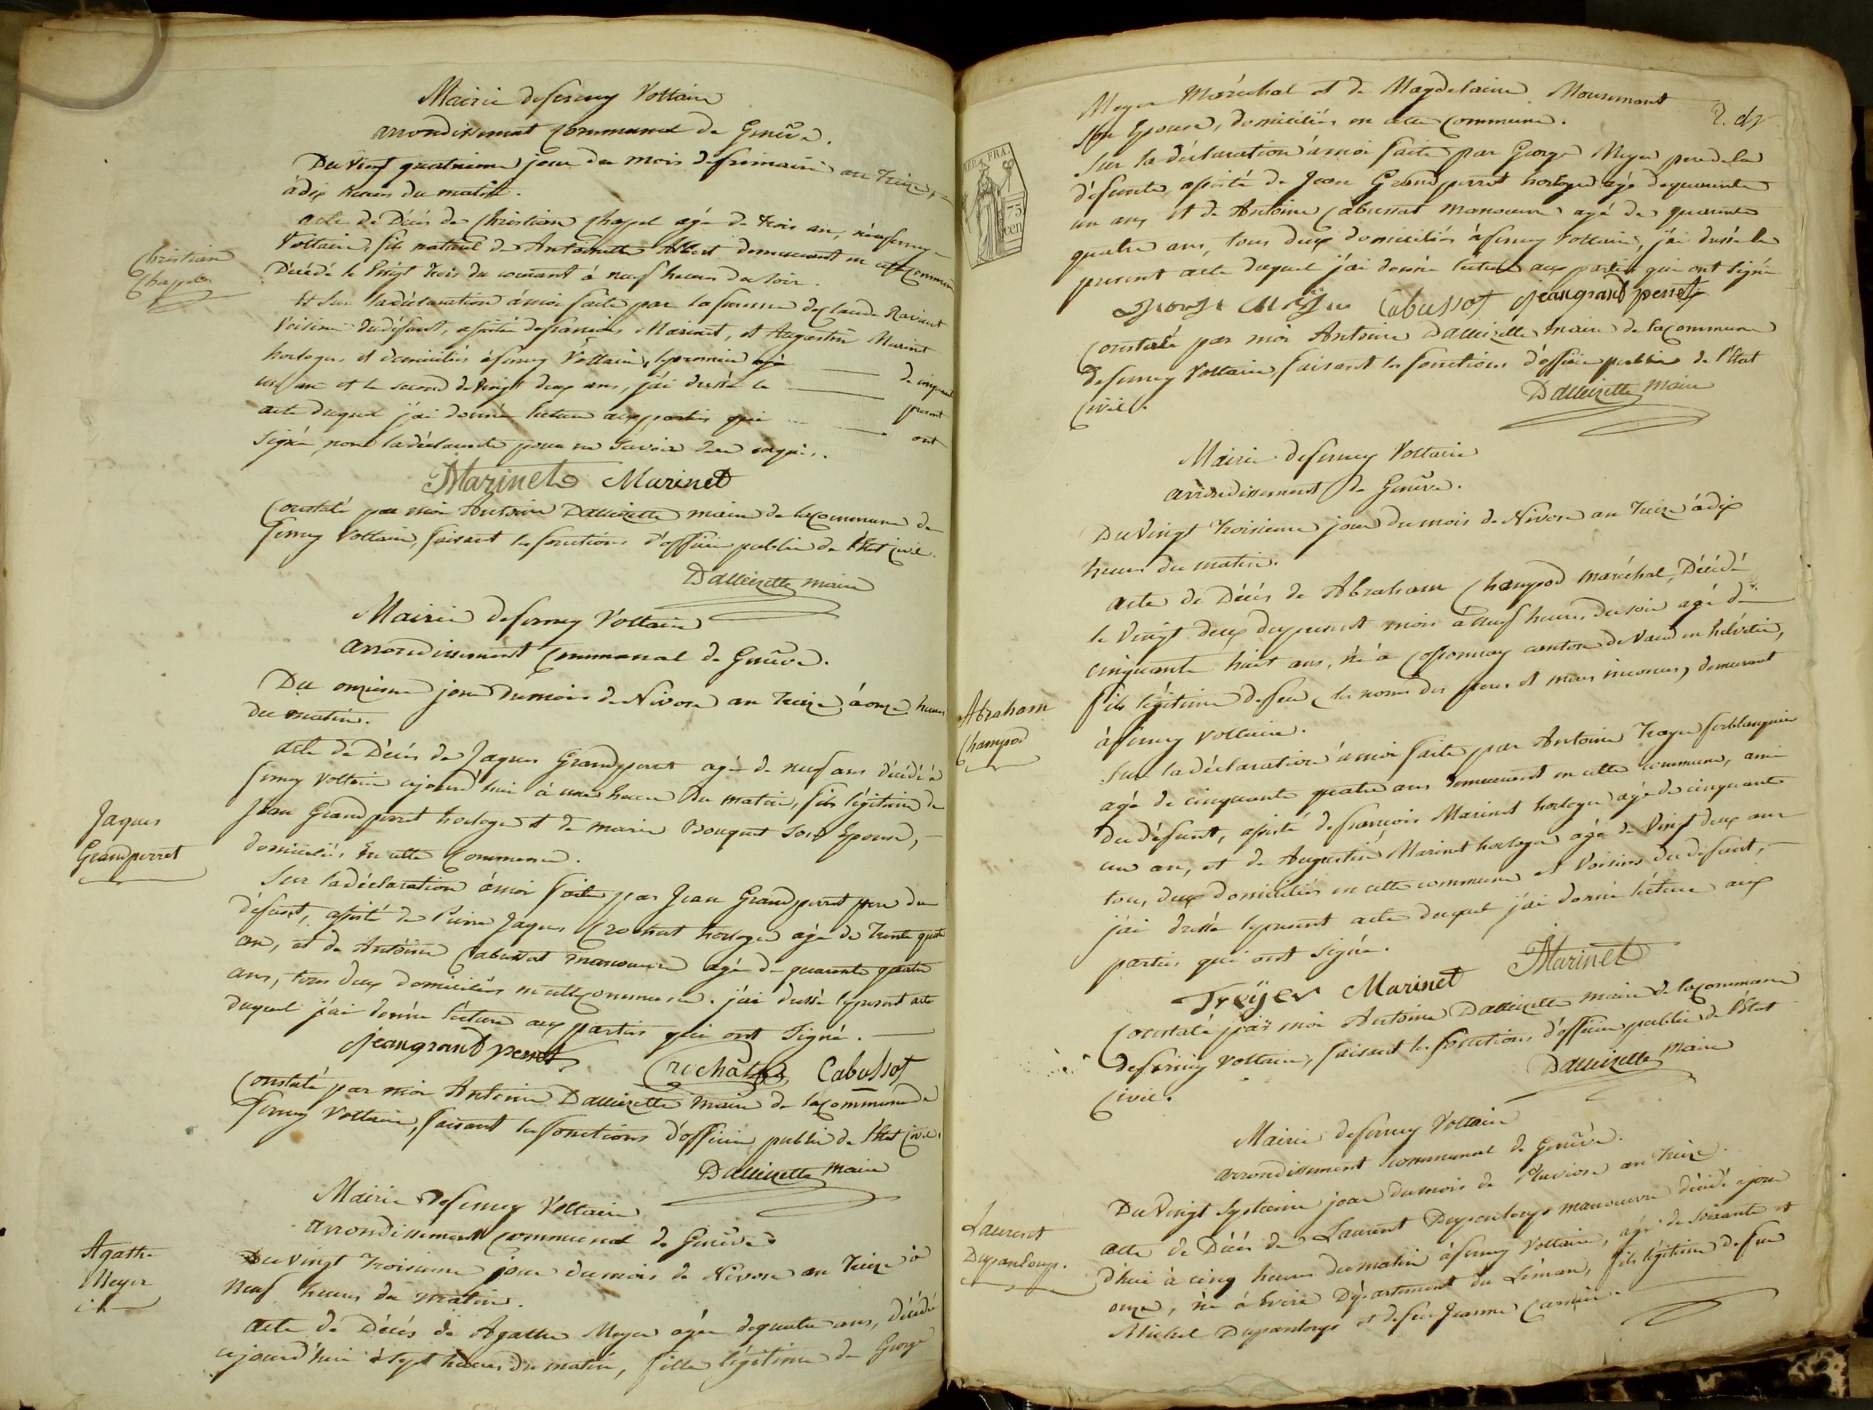 Mairie de ferney Voltaire
arrondissement Communal de Genève.
Du Vingt quatrieme jour du mois de frimaire an treize,
à dix heures du matin.
acte de Décès de Christian Chapel agé de trois ans, né à ferney
Voltaire, fils naturel de Antoinette Albert demeurant en cette Commune
Décédé le Vingt trois du courant à neuf heures du soir.
Christian
Chapel
Et Sur la déclaration à moi faite par la femme de Claude Raviant
Voisine du défunt, assisté de françois Marinet, et Augustin Marinet
horlogers et domiciliés à ferney Voltaire, le premier agé de cinquante
un ans et le second de Vingt deux ans, j'ai dressé le présent
acte duquel j'ai donné lecture aux parties qui ont
Signé, non la déclarante pour ne Savoir de ce requis.
Marinet Marinet
Constaté par moi Antoine Dallizette maire de la commune de
ferney Voltaire, faisant les fonctions d'officier public de l'Etat Civil.
Dallizette maire
Mairie de ferney Voltaire
arrondissement Communal de Genève.
Du onzieme jour du mois de Nivose an treize à onze heures
du matin.
acte de Décès de Jaques Grandperret agé de neuf ans décédé à
ferney Voltaire aujourd'hui à une heure du matin, fils légitime de
Jean Grandperret horloger et de marie Bouquet Son Epouse,
domiciliés En cette Commune.
Jaques
Grandperret
Sur la déclaration à moi faite par Jean Grandperret pere du
défunt, assisté de Pierre Jaques Crochat horloger agé de trente quatre
ans, et de Antoine Cabussat manœuvre agé de quarante quatre
ans, tous deux domiciliés en cette commune. j'ai dressé le présent acte
duquel j'ai donné lecture aux parties qui ont Signé.
Jean grand perret Crochat Cabussot
Constaté par moi Antoine Dallizette maire de la commune de
ferney Voltaire, faisant les fonctions d'officier public de l'Etat Civil.
Dallizette maire
Mairie de ferney Voltaire
arrondissement Communal de Genève
Du Vingt troisieme jour du mois de Nivose an treize à
Neuf heures du matin.
Agathe
Meyer
acte de Décès de Agathe Meyer agée de quatre ans, décédée
aujourd'hui à Sept heures du matin, fille légitime de George
Meyer Maréchal et de Magdelaine Mourmant
Son Epouse, domiciliés en cette Commune.
Sur la déclaration à moi faite par George Meyer pere de la
défunte, assisté de Jean Grandperret horloger agé de quarante
un ans, et de Antoine Cabussat manœuvre agé de quarante
quatre ans, tous deux domiciliés à ferney Voltaire, j'ai dressé le
present acte duquel j'ai donné lecture aux parties qui ont Signé
Cabussot Jean grand perret
Constaté par moi Antoine Dallizette maire de la commune
de ferney Voltaire, faisant les fonctions d'officier public de l'Etat
Civil.
Dallizette maire
REP. FRA.
75
cen
Mairie de ferney Voltaire
arrondissement de Genève.
Du Vingt troisieme jour du mois de Nivose an treize à dix
heures du matin.
acte de Décès de Abraham Champod maréchal, Décédé
le Vingt deux du present mois à neuf heures du soir agé de
cinquante huit ans, né à Cossonnay canton de Vaud en helvétie,
fils légitime de feu (les noms des peres et meres inconnus) demeurant
à ferney voltaire.
Abraham
Champod
Sur la déclaration à moi faite par Antoine Troyer ferblanquier
agé de cinquante quatre ans demeurant en cette commune, ami
du défunt, assisté de francois Marinet horloger agé de cinquante
un ans, et de Augustin Marinet horloger agé de Vingt deux ans
tous deux domiciliés en cette commune et Voisins du défunt,
j'ai dressé le present acte duquel j'ai donné lecture aux
parties qui ont signé.
Troÿer Marinet Marinet
Constaté par moi Antoine Dallizette maire de la commune
de ferney Voltaire, faisant les fonctions d'officier public de l'Etat
Civil.
Dallizette maire
Mairie de ferney Voltaire
arrondissement communal de Genève.
Du Vingt Septieme jour du mois de Pluviose an treize.
acte de Décès de Laurent Dupanloup manœuvre décédé ajour
d'hui à cinq heures du matin à ferney Voltaire, agé de soixante et
onze, né à Évire Département du Léman, fils légitime de feu
Michel Dupanloup et de feu Jeanne
Laurent
Dupanloup.